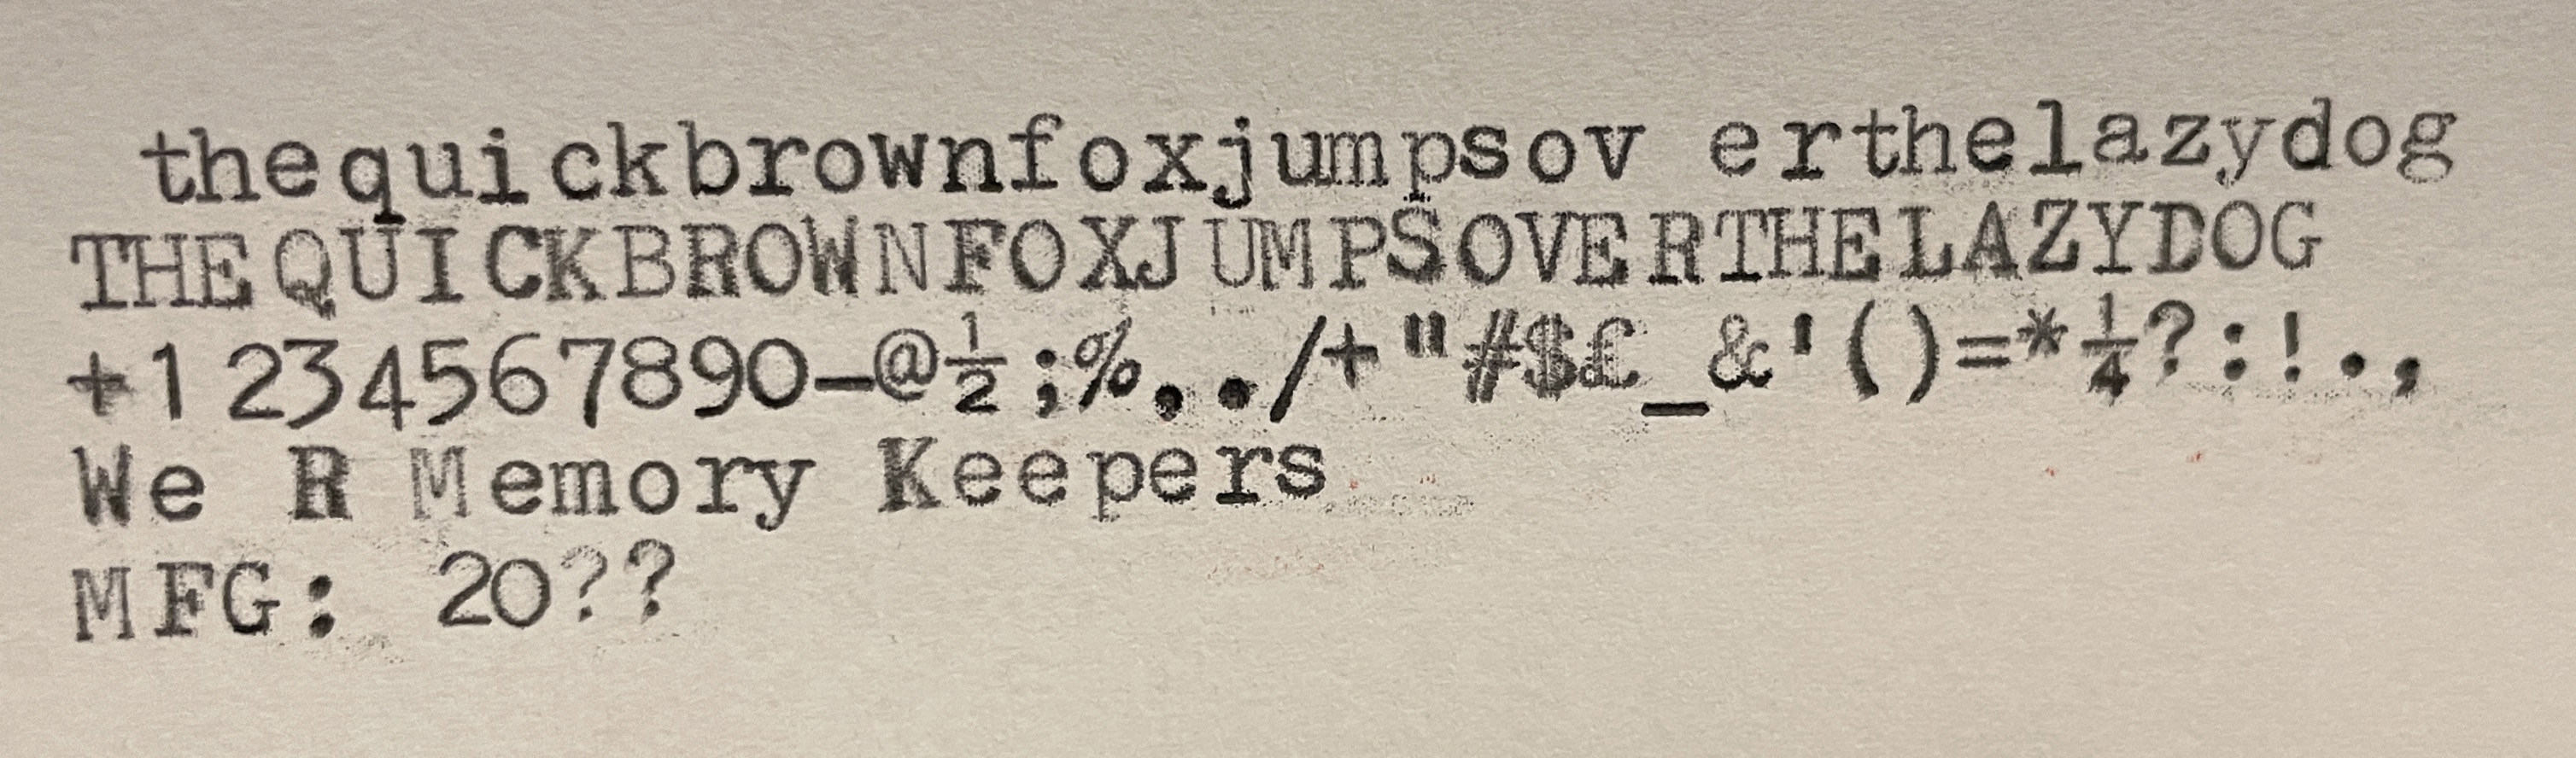 thequickbrownfoxjumpsov erthelazydog
THEQUICKBROWNFOXJUMPSOVERTHELAZYDOG
+1234567890-@½;%,./+"#$£_&'()=*¼?:!.,
We R Memory Keepers
MFG: 20??